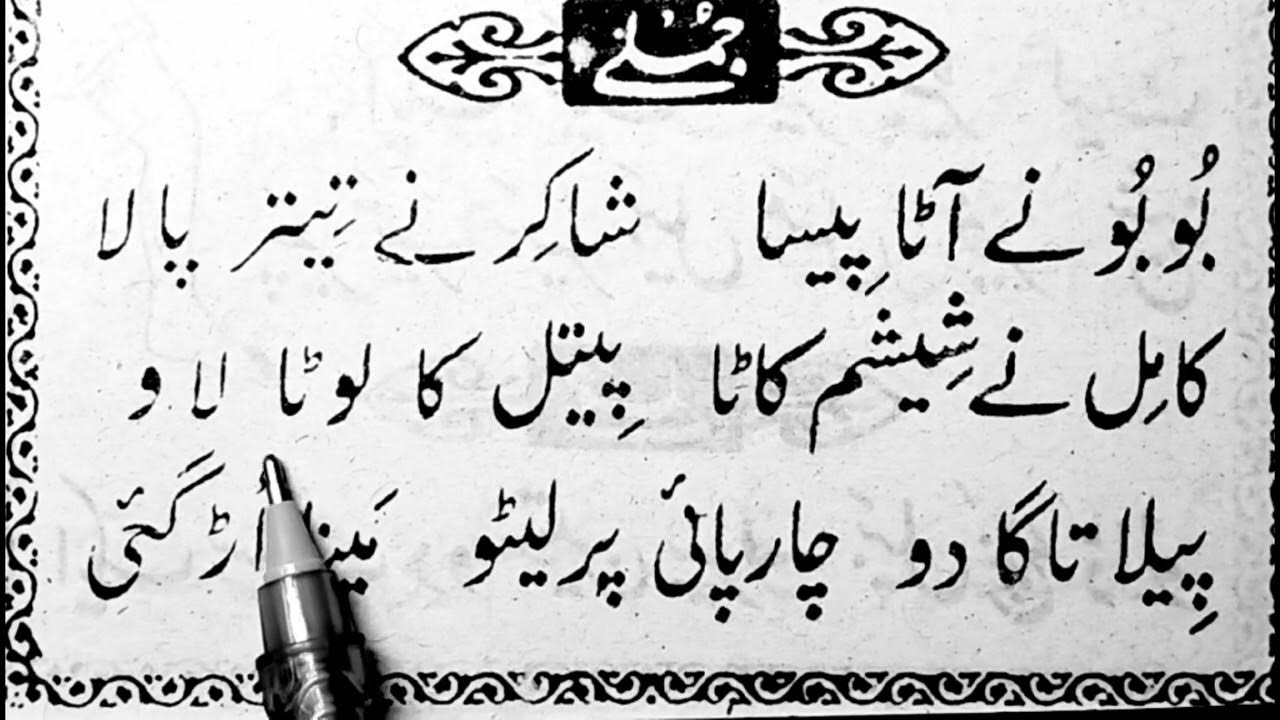 جُملے
بُوبُو نے آٹا پِیسا شاکِر نے تِیتر پالا
کامِل نے شِیشم کاٹا پِیتل کا لوٹا لاو
پِیلا تاگا دو چارپائی پر لیٹو مَینا اُڑ گئی